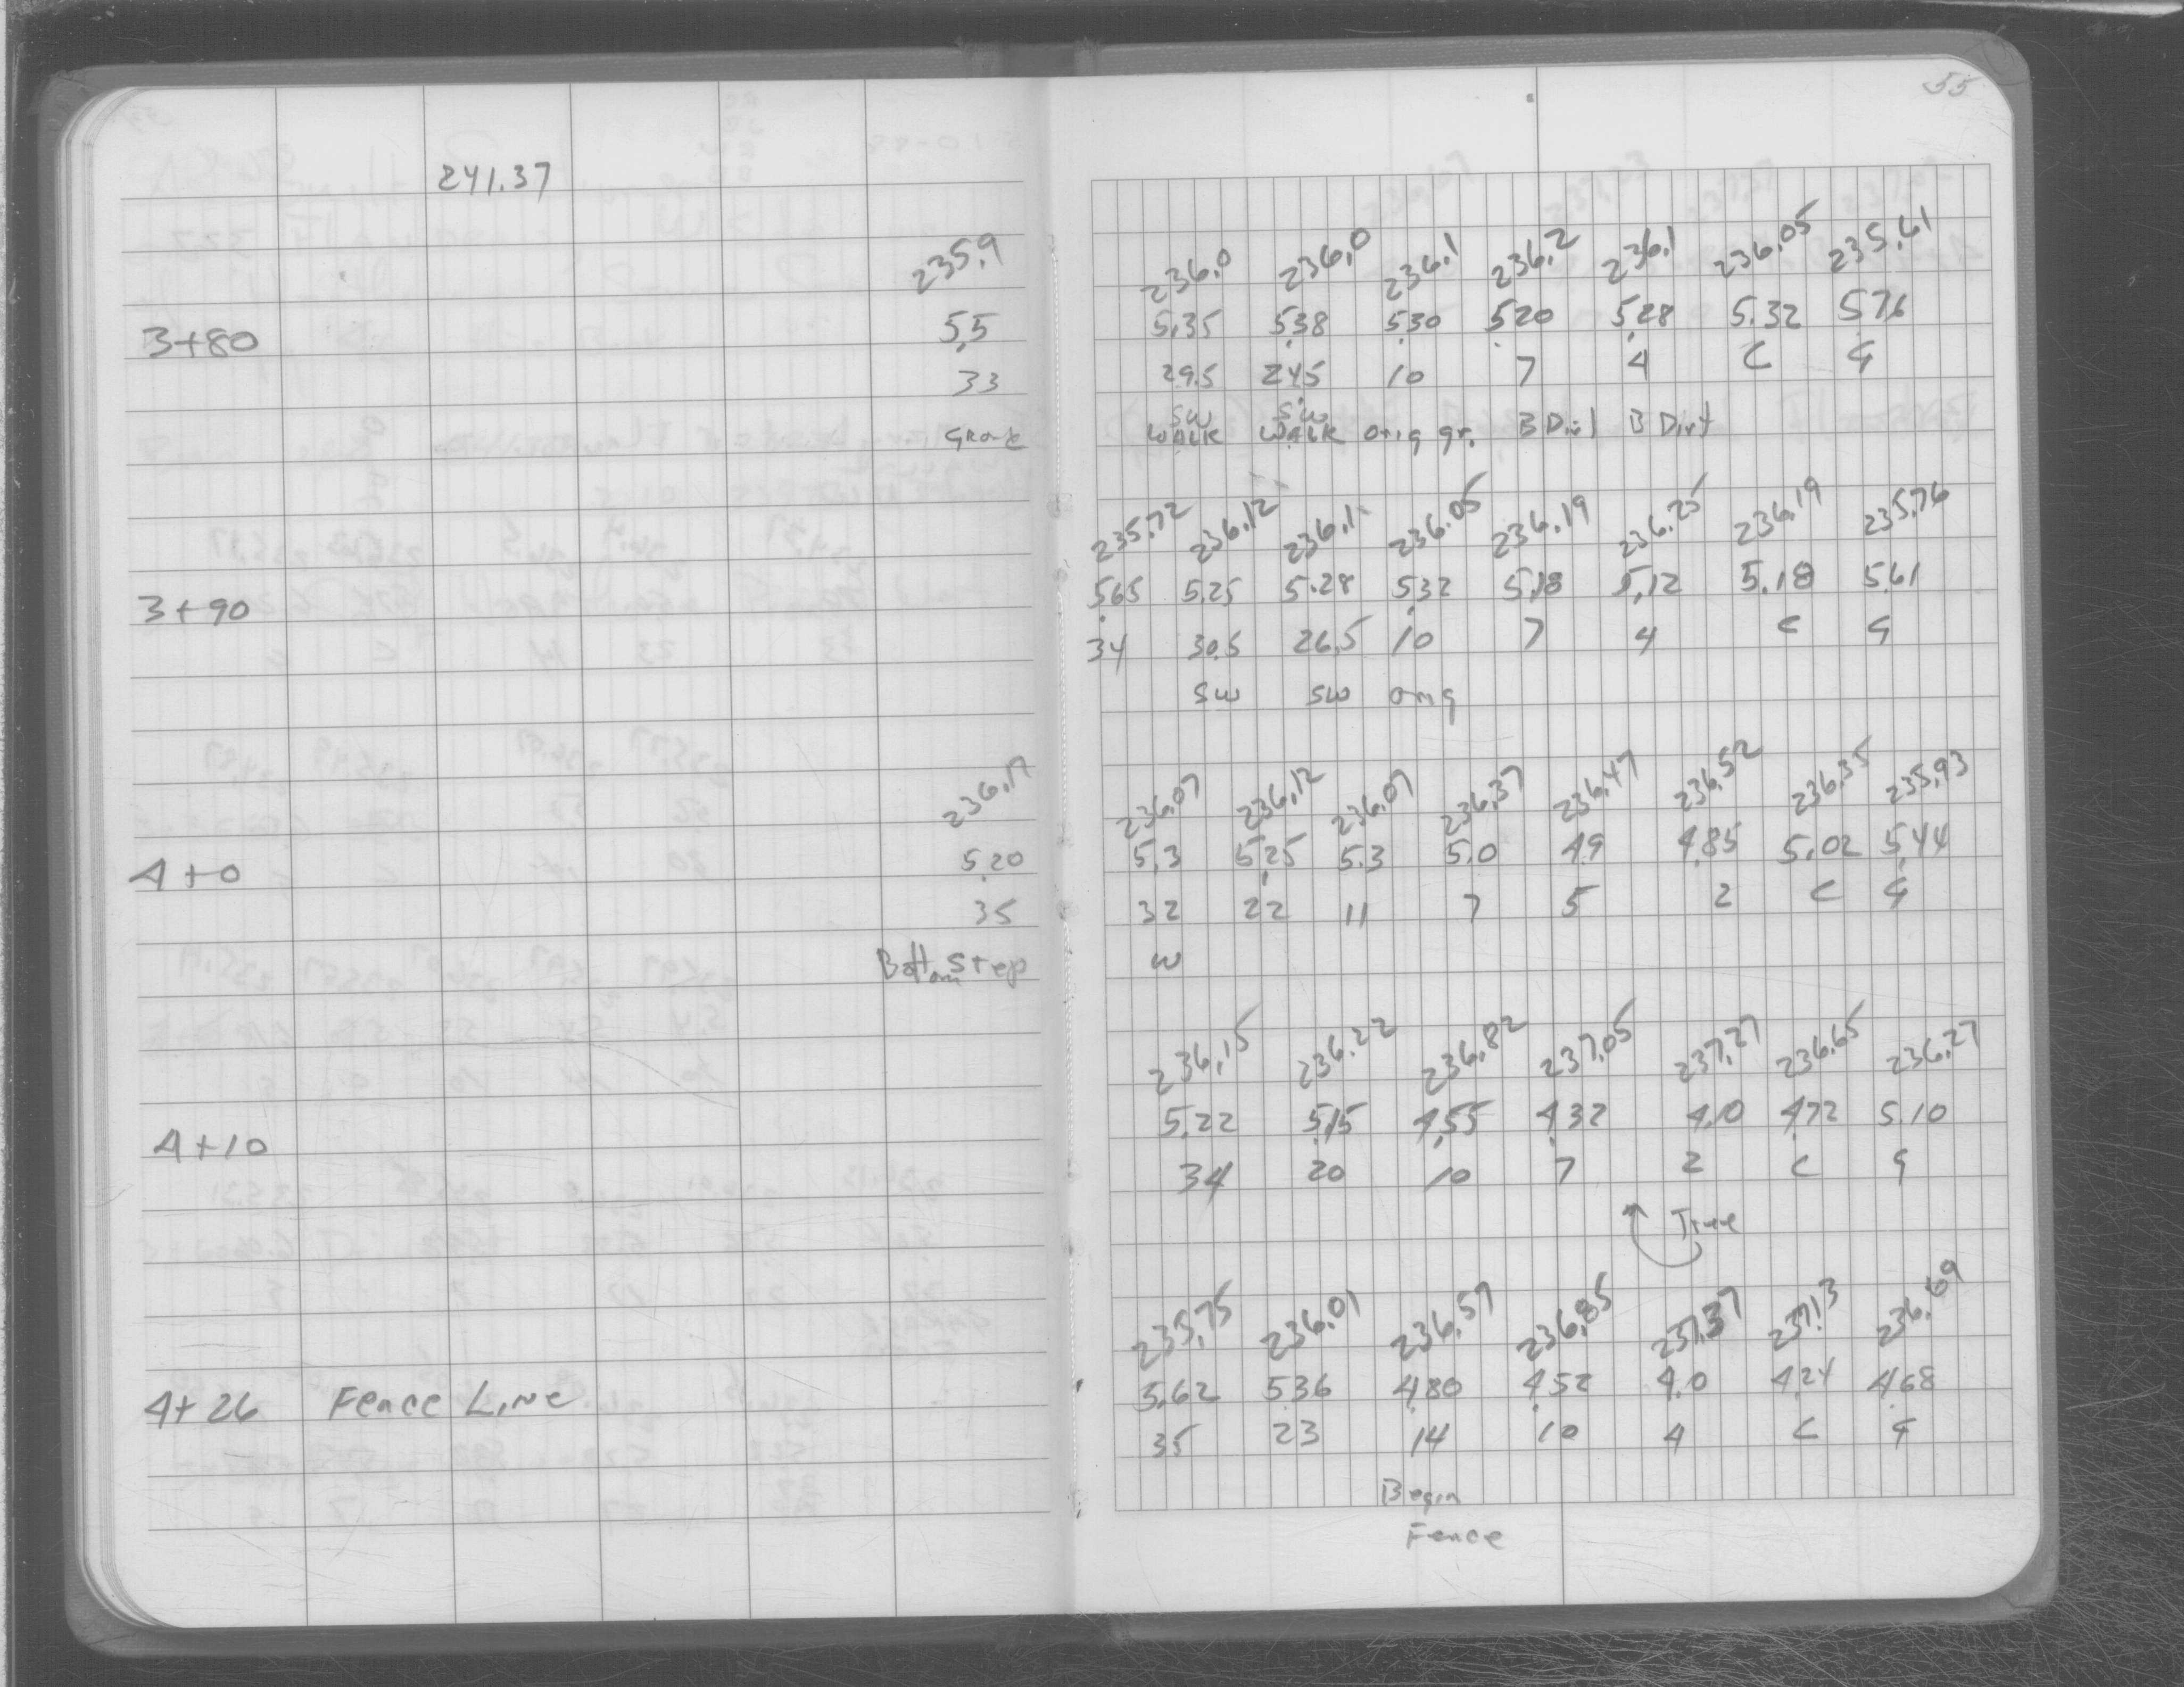 55
241.37
235.9 236.0 236.0 236.1 236.2 236.1 236.05 235.61
3+80 5.5 5.35 5.38 5.30 5.20 5.28 5.32 5.76
33 29.5 24.5 10 7 4 C G
SW SW
Walk Walk orig gr. B Dirt B Dirt
235.72 236.12 236.1 236.05 236.19 236.25 236.19 235.76
3+90 5.65 5.25 5.28 5.32 5.18 5.12 5.18 5.61
34 30.5 26.5 10 7 4 C G
SW SW orig
236.17 236.07 236.12 236.07 236.37 236.47 236.52 236.35 235.93
4+0 5.20 5.3 5.25 5.3 5.0 4.9 4.85 5.02 5.44
35 32 22 11 7 5 2 C G
Bottom Step W
236.15 236.22 236.82 237.05 237.37 236.65 236.27
4+10 5.22 5.15 4.55 4.32 4.0 4.72 5.10
34 20 10 7 2 C G
Tree
235.75 236.01 236.57 236.85 237.37 237.13 236.69
4+26 Fence Line 5.62 5.36 4.80 4.52 4.0 4.24 4.68
35 23 14 10 4 C G
Begin
Fence